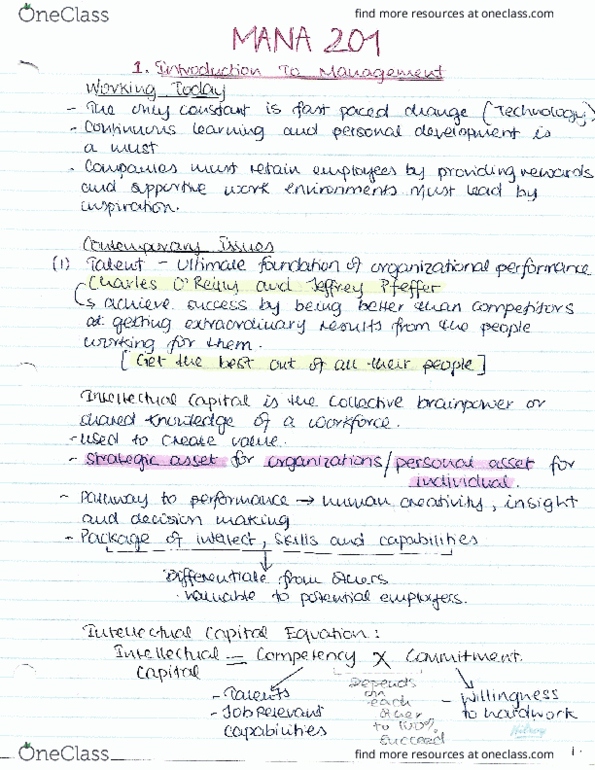 OneClass
find more resources at oneclass.com
MANA 201
1. Introduction To Management
Working Today
- The only constant is fast paced change (Technology)
- Continuous learning and personal development is
a must
- Companies must retain employees by providing rewards
and supportive work environments must lead by
inspiration.
Contemporary Issues
(1) Talent - Ultimate foundation of organizational performance
Charles O'Reilly and Jeffrey Pfeffer
↳ achieve success by being better than competitors
at getting extraordinary results from the people
working for them.
[Get the best out of all their people]
Intellectual Capital is the collective brainpower or
shared knowledge of a workforce.
- Used to create value.
- Strategic asset for organizations/personal asset for
individual.
- Pathway to performance → human creativity, insight
and decision making
- Package of intellect, skills and capabilities
Differentiate from others
valuable to potential employers.
Intellectual Capital Equation:
Intellectual = Competency X Commitment.
Capital
Depends
on
each
other
to 100%
succeed
- Talents
- Job Relevant
capabilities
- Willingness
to hardwork
1.
OneClass
find more resources at oneclass.com